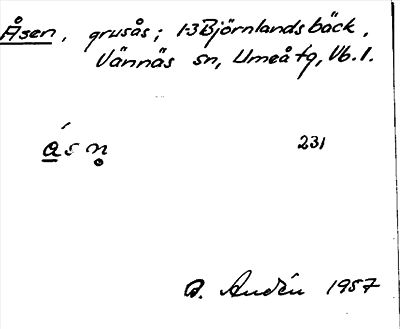 Åsen, grusås; 1-3 Björnlandsbäck,
Vännäs sn, Umeå tg, Vb. l.
á s n̥ 231
B. Andén 1957